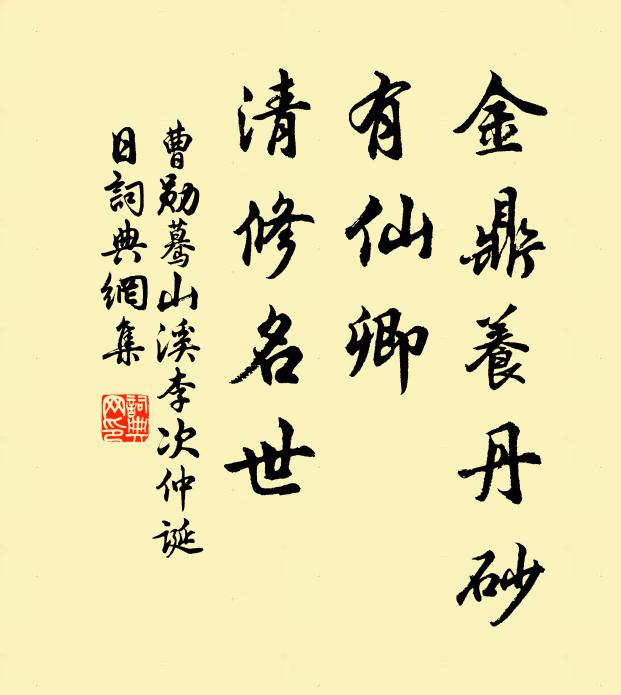 金鼎養丹砂
有仙卿
清修名世
曹勛驀山溪李次仲誕
日詞典網集
詞典
网印